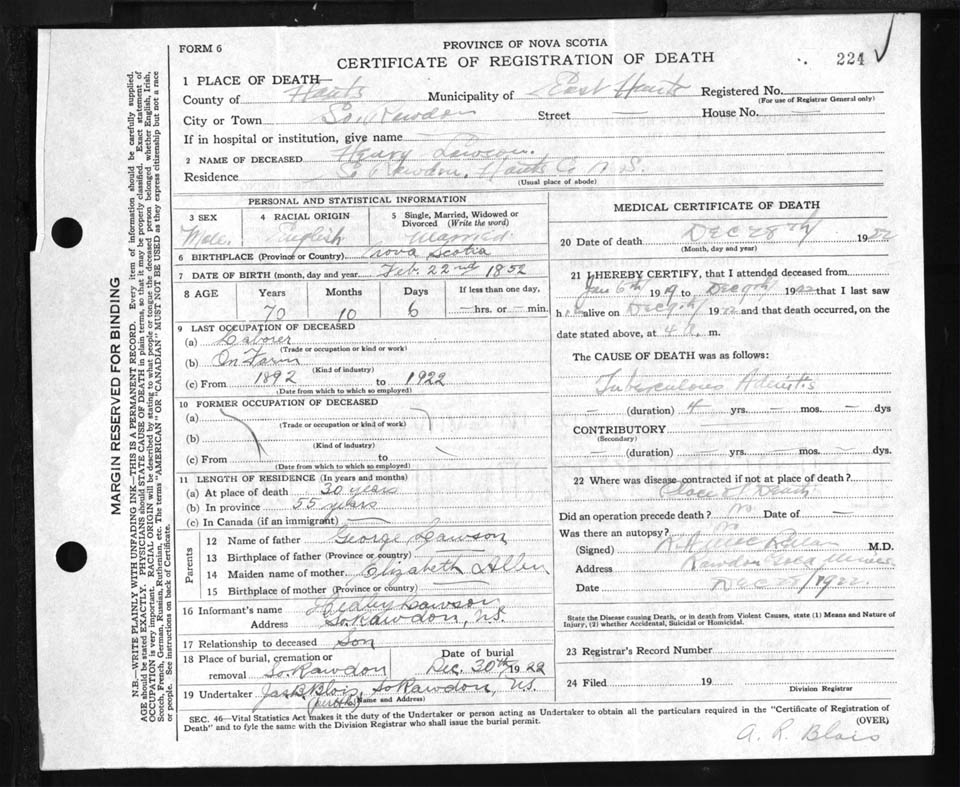 FORM 6
PROVINCE OF NOVA SCOTIA
CERTIFICATE OF REGISTRATION OF DEATH
224
1 PLACE OF DEATH—
County of Hants Municipality of East Hants Registered No.
(For use of Registrar General only)
City or Town So. Rawdon Street — House No. —
If in hospital or institution, give name
2 NAME OF DECEASED Henry Lawson.
Residence So Rawdon, Hants Co N.S.
(Usual place of abode)
PERSONAL AND STATISTICAL INFORMATION
3 SEX 4 RACIAL ORIGIN 5 Single, Married, Widowed or
Divorced (Write the word)
Male. English Married
6 BIRTHPLACE (Province or Country) Nova Scotia
7 DATE OF BIRTH (month, day and year) Feb. 22nd 1852
8 AGE Years Months Days If less than one day,
70 10 6 — hrs. or — min.
9 LAST OCCUPATION OF DECEASED
(a) Laborer
(Trade or occupation or kind or work)
(b) On Farm
(Kind of industry)
(c) From 1892 to 1922
(Date from which to which so employed)
10 FORMER OCCUPATION OF DECEASED
(a)
(Trade or occupation or kind of work)
(b)
(Kind of industry)
(c) From to
(Date from which to which so employed)
11 LENGTH OF RESIDENCE (In years and months)
(a) At place of death 30 years
(b) In province 55 years
(c) In Canada (if an immigrant) —
Parents
12 Name of father George Lawson
13 Birthplace of father (Province or country)
14 Maiden name of mother Elizabeth Allen
15 Birthplace of mother (Province or country)
16 Informant's name Lawson
Address So Rawdon, N.S.
17 Relationship to deceased Son
18 Place of burial, cremation or
removal So. Rawdon
Date of burial
Dec. 30th 1922
19 Undertaker Jas. B. Blois, So Rawdon, N.S.
(Name and Address)
MEDICAL CERTIFICATE OF DEATH
20 Date of death Dec 28th 1922
(Month, day and year)
21 I HEREBY CERTIFY, that I attended deceased from
Jan 6th 1919 to Dec 9th 1922 that I last saw
h alive on Dec 9th 1922 and that death occurred, on the
date stated above, at 4 m.
The CAUSE OF DEATH was as follows:
Tuberculous Adenitis
— (duration) 4 yrs. — mos. — dys
CONTRIBUTORY
(Secondary)
— (duration) — yrs. — mos. — dys.
22 Where was disease contracted if not at place of death?
Place of Death
Did an operation precede death? No Date of —
Was there an autopsy? No
(Signed) M.D.
Address Rawdon Gold Mines
Date Dec 28/1922.
State the Disease causing Death, or in death from Violent Causes, state (1) Means and Nature of
Injury, (2) whether Accidental, Suicidal or Homicidal.
23 Registrar's Record Number
24 Filed 19
Division Registrar
SEC. 46—Vital Statistics Act makes it the duty of the Undertaker or person acting as Undertaker to obtain all the particulars required in the "Certificate of Registration of
Death" and to fyle the same with the Division Registrar who shall issue the burial permit.
(OVER)
A. R. Blois
MARGIN RESERVED FOR BINDING
N.B.—WRITE PLAINLY WITH UNFADING INK—THIS IS A PERMANENT RECORD. Every item of information should be carefully supplied.
AGE should be stated EXACTLY. PHYSICIANS should STATE CAUSE OF DEATH in plain terms, so that it may be properly classified. Exact statement of
OCCUPATION is very important. RACIAL ORIGIN will be described by stating to what people or tongue the deceased person belonged whether English, Irish,
Scotch, French, German, Russian, Ruthenian, etc. The terms "AMERICAN" OR "CANADIAN" MUST NOT BE USED as they express citizenship but not a race
or people. See instructions on back of Certificate.